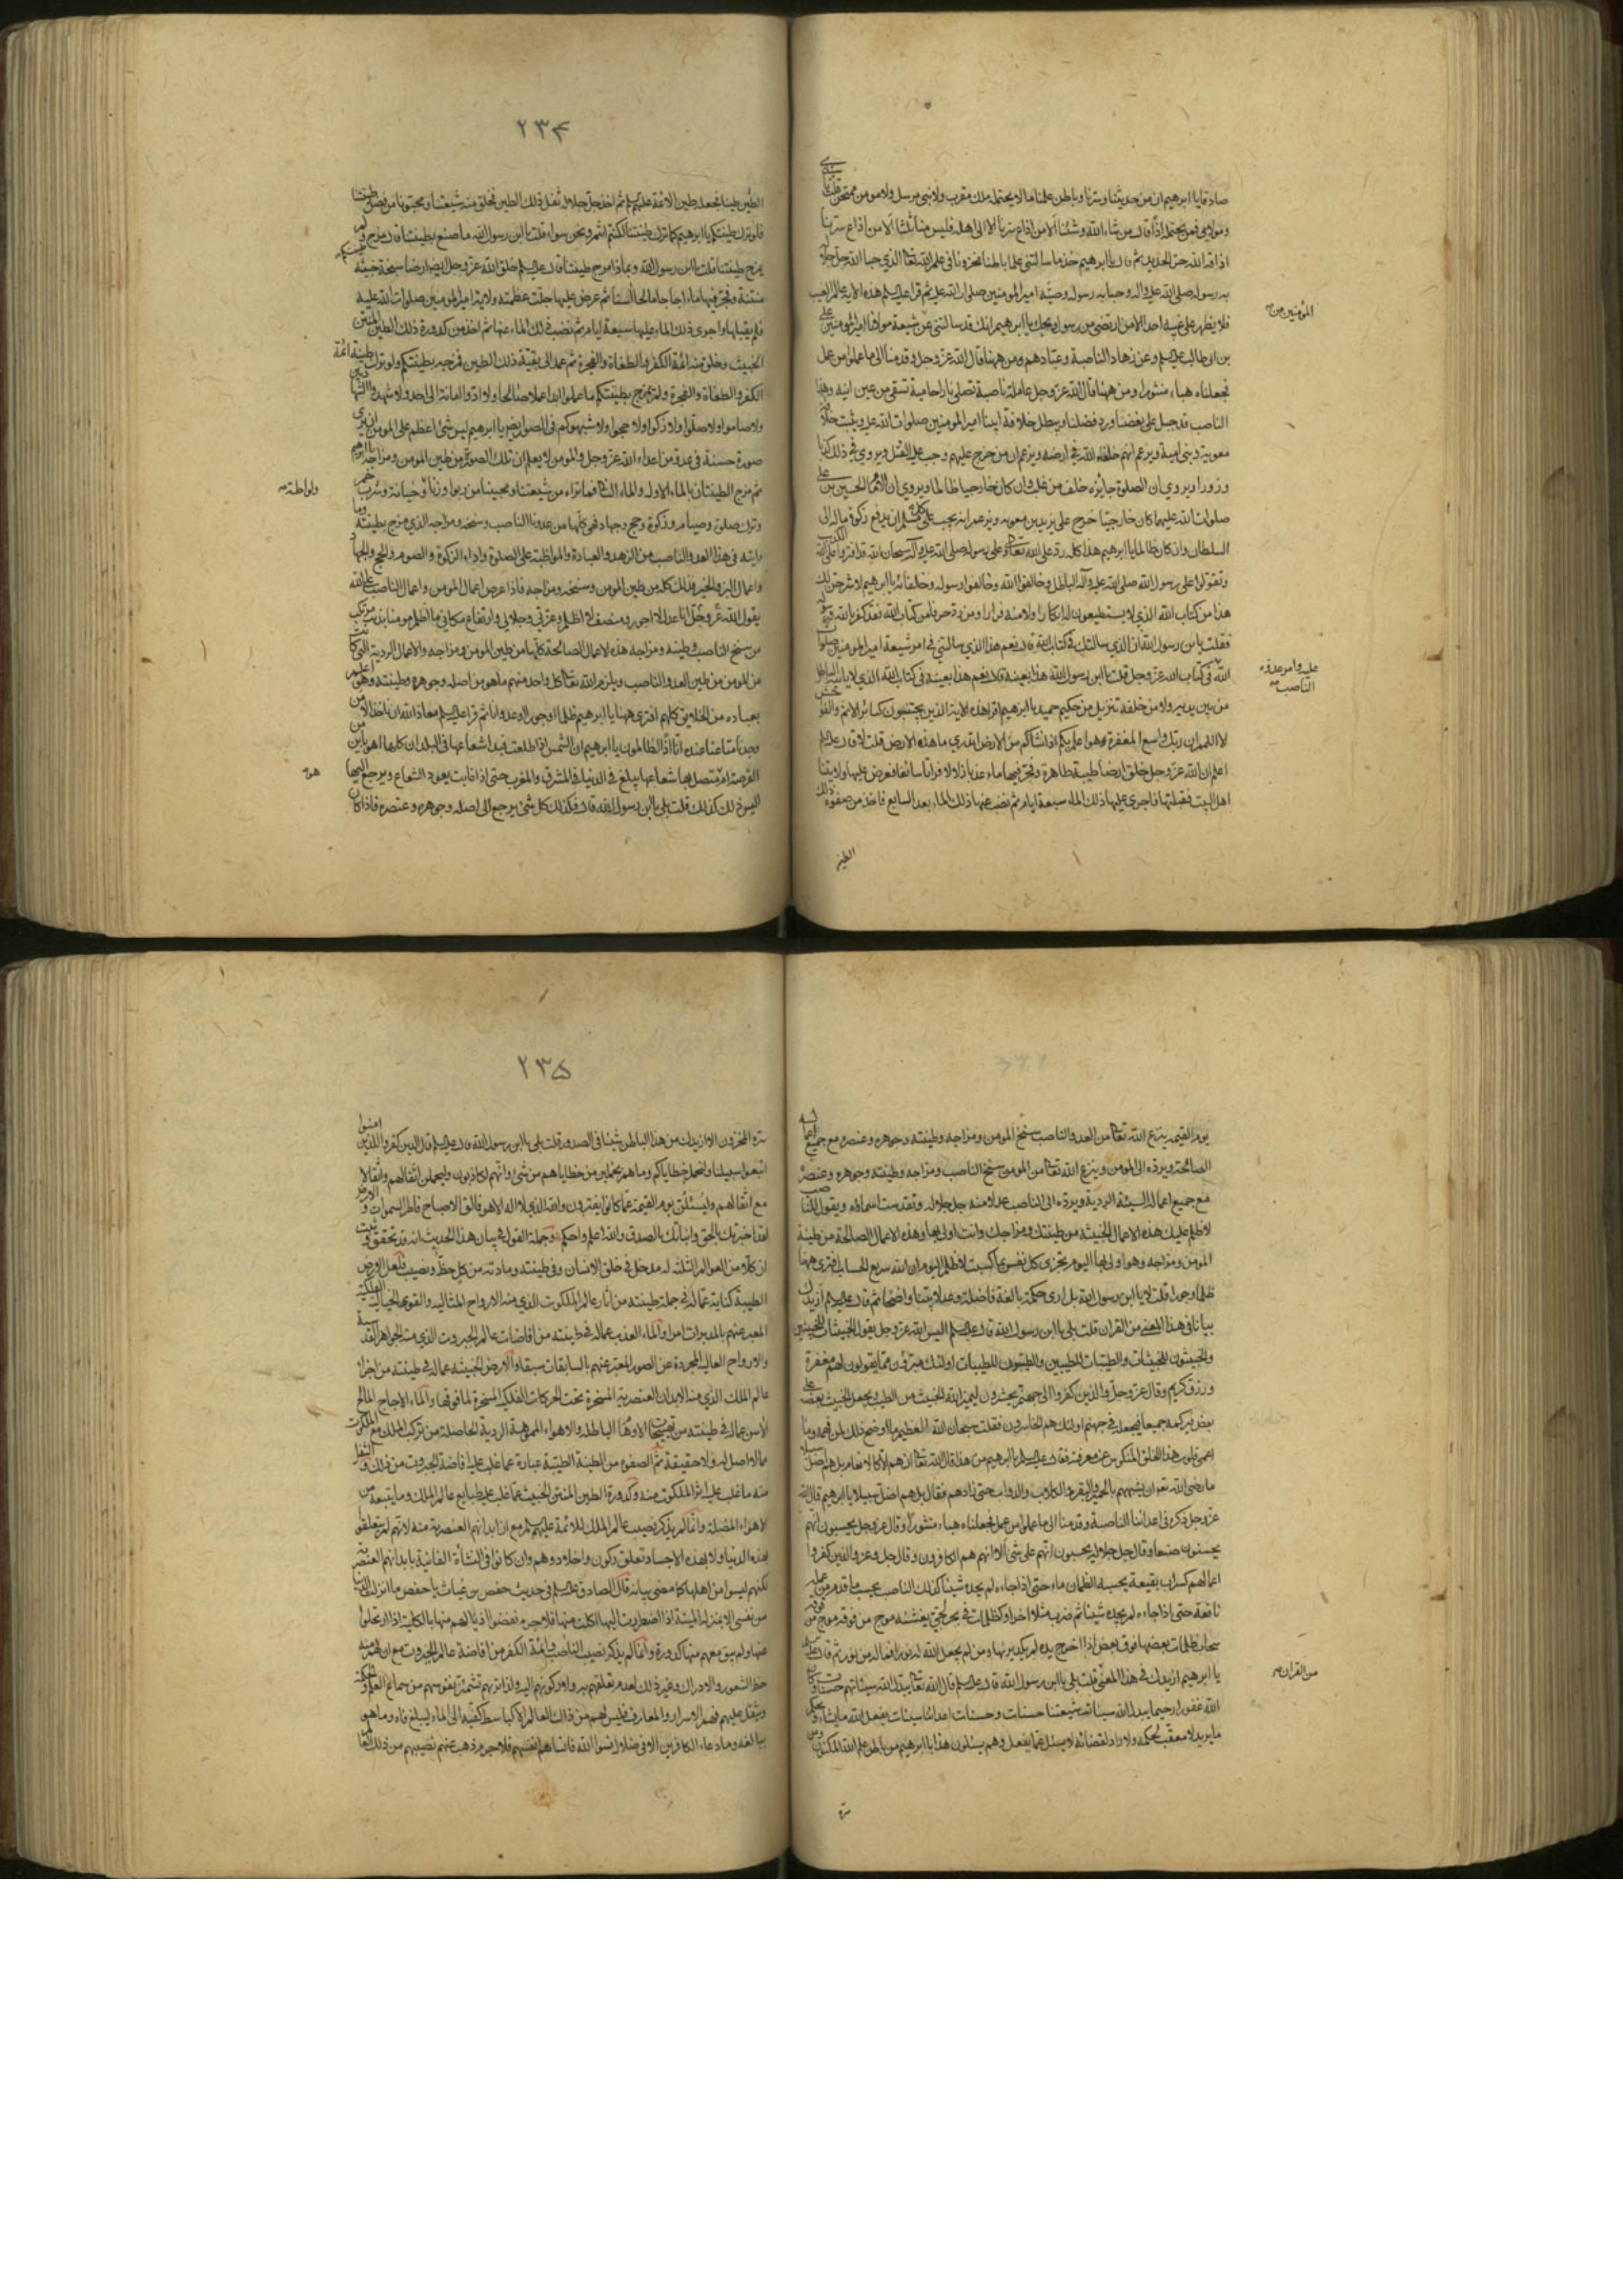 صادقا يا ابرهيم ان من حديثنا وسرنا وباطن علمنا ما لا يحتمله ملك مقرب ولا نبي مرسل ولا مومن ممتحن قلت يا سيدي
ومولاي فمن يحتمله اذا قال من شاء الله وشئنا الا من اذاع سرنا الا الى اهله فليس منا ثلثا الا من اذاع سرنا
اذاقه الله حر الحديد ثم قال يا ابرهيم خذ ما سالتني علما باطنا مخزونا في علم الله تعالى الذي حبا الله جل جلاله
به رسوله صلى الله عليه واله وحبا به رسوله وصيه امير المومنين صلوات الله عليه ثم قرا عليه السلم هذه الاية عالم الغيب
فلا يظهر على غيبه احدا الا من ارتضى من رسول ويحك يا ابرهيم انك قد سالتني عن شيعة مولانا امير المومنين علي
المؤمنين من
بن ابي طالب عليه السلم وعن زهاد الناصبة وعبادهم ومن ههنا قال الله عز وجل وقدمنا الى ما عملوا من عمل
فجعلناه هباء منثورا ومن ههنا قال الله عز وجل عاملة ناصبة تصلى نارا حامية تسقى من عين انية وهذا
الناصب قد جبل على بغضنا ورد فضلنا ويبطل خلافة ابينا امير المومنين صلوات الله عليه ويثبت خلافة
معوية وبني امية ويزعم انهم خلفاء الله في ارضه ويزعم ان من خرج عليهم وجب عليه القتل ويروي في ذلك كذبا
وزورا ويروي ان الصلوة جايزة خلف من غلب وان كان خارجيا ظالما ويروي ان الامام الحسين بن علي
صلوات الله عليهما كان خارجيا خرج على يزيد بن معوية ويزعم انه يجب على كل مسلم ان يدفع زكوة ماله الى
السلطان وان كان ظالما يا ابرهيم هذا كله رد على الله تعالى وعلى رسوله صلى الله عليه واله سبحان الله قد افتروا على الله الكذب
وتقولوا على رسول الله صلى الله عليه واله الباطل وخالفوا الله وخالفوا رسوله وخلفائه يا ابرهيم لاشرحن لك
هذا من كتاب الله الذي لا يستطيعون له انكارا ولا منه فرارا ومن رد حرفا من كتاب الله فقد كفر بالله ورسوله
فقلت يا بن رسول الله ان الذي سالتك في كتاب الله قال نعم هذا الذي سالتني في امر شيعة امير المومنين صلوات
الله في كتاب الله عز وجل قلت يا ابن رسول الله هذا بعينه قال نعم هذا بعينه في كتاب الله الذي لا ياتيه الباطل
عليه وامر عدوه الناصب
من بين يديه ولا من خلفه تنزيل من حكيم حميد يا ابرهيم اقرا هذه الاية الذين يجتنبون كبائر الاثم والفواحش
الا اللمم ان ربك واسع المغفرة هو اعلم بكم اذ انشاكم من الارض اتدري ما هذه الارض قلت لا قال عليه السلم
اعلم ان الله عز وجل خلق ارضا طيبة طاهرة وفجر فيها ماء عذبا زلالا فراتا سائغا فعرض عليها ولايتنا
اهل البيت فقبلتها فاجرى عليها ذلك الماء سبعة ايام ثم نضب عنها ذلك الماء بعد السابع فاخذ من صفوة ذلك
الطين
۲۳۴
الطين طينا فجعله طين الائمة عليهم السلم ثم اخذ جل جلاله ثفل ذلك الطين فخلق منه شيعتنا ومحبونا من فضل طينتنا
فلو ترك طينتكم يا ابرهيم كما ترك طينتنا لكنتم انتم ونحن سواء قلت يا ابن رسول الله ما صنع بطينتنا قال مزج ولم
يمزج طينتنا قلت يا ابن رسول الله وبماذا مزج طينتنا قال عليه السلم خلق الله عز وجل ايضا ارضا سبخة خبيثة
منتنة وفجر فيها ماء اجاجا مالحا اسنا ثم عرض عليها جلت عظمته ولاية امير المومنين صلوات الله عليه
فلم يقبلها واجرى ذلك الماء عليها سبعة ايام ثم نضب ذلك الماء عنها ثم اخذ من كدورة ذلك الطين المنتن
الخبيث وخلق منه ائمة الكفر والطغاة والفجرة ثم عمد الى بقية ذلك الطين فمزجه بطينتكم ولو ترك طينة ائمة
الكفر والطغاة والفجرة ولم يمزج بطينتكم ما عملوا ابدا عملا صالحا ولا ادوا امانة الى احد ولا شهدوا الشهادتين
ولا صاموا ولا صلوا ولا زكوا ولا حجوا ولا شبهوكم في الصور ايضا يا ابرهيم ليس شئ اعظم على المومن ان يرى
صورة حسنة في عدو من اعداء الله عز وجل والمومن لا يعلم ان تلك الصورة من طين المومن ومزاجه يا ابرهيم
ثم مزج الطينتان بالماء الاول والماء الثاني فما تراه من شيعتنا ومحبينا من ربوا وزنا وخيانة وشرب خمر
ولواطة
وترك صلوة وصيام وزكوة وحج وجهاد فهي كلها من عدونا الناصب وسنخه ومزاجه الذي مزج بطينته وما
رايته في هذا العدو الناصب من الزهد والعبادة والمواظبة على الصلوة واداء الزكوة والصوم والحج والجهاد
واعمال البر والخير فذلك كله من طين المومن وسنخه ومزاجه فاذا عرض اعمال المومن واعمال الناصب على الله
يقول الله عز وجل انا عدل لا اجور ومنصف لا اظلم وعزتي وجلالي وارتفاع مكاني ما اظلم مومنا بذنب مرتكب
من سنخ الناصب وطينه ومزاجه هذه الاعمال الصالحة كلها من طين المومن ومزاجه والاعمال الردية التي كانت
من المومن من طين العدو الناصب ويلزم الله تعالى كل واحد منهم ما هو من اصله وجوهره وطينته وهو اعلم
بعباده من الخلايق كلهم افترى ههنا يا ابرهيم ظلما او جورا او عدوانا ثم قرا عليه السلم معاذ الله ان ناخذ الا من
وجدنا متاعنا عنده انا اذا لظالمون يا ابرهيم ان الشمس اذا طلعت فبدا شعاعها في البلدان كلها اهو باين من
القرصة ام متصل بها شعاعها يبلغ في الدنيا في المشرق والمغرب حتى اذا غابت يعود الشعاع ويرجع اليها
هو
اليس ذلك كذلك قلت بلى يا ابن رسول الله قال فكذلك كل شئ يرجع الى اصله وجوهره وعنصره فاذا كان
يوم القيمة ينزع الله تعالى من العدو الناصب سنخ المومن ومزاجه وطينته وجوهره وعنصره مع جميع اعماله
الصالحة ويرده الى المومن وينزع الله تعالى من المومن سنخ الناصب ومزاجه وطينته وجوهره وعنصره
مع جميع اعماله السيئة الردية ويرده الى الناصب عدلا منه جل جلاله وتقدست اسماؤه ويقول للناصب
لا ظلم عليك هذه الاعمال الخبيثة من طينتك ومزاجك وانت اولى بها وهذه الاعمال الصالحة من طينة
المومن ومزاجه وهو اولى بها اليوم تجزى كل نفس بما كسبت لا ظلم اليوم ان الله سريع الحساب افترى ههنا
ظلما وجورا قلت لا يا ابن رسول الله بل ارى حكمة بالغة فاضلة وعدلا بينا واضحا ثم قال عليه السلم ازيدك
بيانا في هذا المعنى من القران قلت بلى يا ابن رسول الله قال عليه السلم اليس الله عز وجل يقول الخبيثات للخبيثين
والخبيثون للخبيثات والطيبات للطيبين والطيبون للطيبات اولئك مبرؤن مما يقولون لهم مغفرة
ورزق كريم وقال عز وجل والذين كفروا الى جهنم يحشرون ليميز الله الخبيث من الطيب ويجعل الخبيث بعضه على
بعض فيركمه جميعا فيجعله في جهنم اولئك هم الخاسرون فقلت سبحان الله العظيم ما اوضح ذلك لمن فهمه وما
اعمى قلوب هذا الخلق المنكوس عن معرفته فقال عليه السلم يا ابرهيم من هذا قال الله تعالى ان هم الا كالانعام بل هم اضل سبيلا
ما رضي الله تعالى ان يشبههم بالحمير والبقر والكلاب والدواب حتى زادهم فقال بل هم اضل سبيلا يا ابرهيم قال الله
عز وجل ذكره في اعدائنا الناصبة وقدمنا الى ما عملوا من عمل فجعلناه هباء منثورا وقال عز وجل يحسبون انهم
يحسنون صنعا وقال جل جلاله يحسبون انهم على شئ الا انهم هم الكاذبون وقال جل وعز والذين كفروا
اعمالهم كسراب بقيعة يحسبه الظمان ماء حتى اذا جاءه لم يجده شيئا كذلك الناصب يحسب ما قدم من عمله
نافعة حتى اذا جاءه لم يجده شيئا ثم ضرب مثلا اخر او كظلمات في بحر لجي يغشيه موج من فوقه موج من فوقه
سحاب ظلمات بعضها فوق بعض اذا اخرج يده لم يكد يريها ومن لم يجعل الله له نورا فما له من نور ثم قال عليه السلم
يا ابرهيم ازيدك في هذا المعنى قلت بلى يا ابن رسول الله قال عليه السلم قال الله تعالى يبدل الله سيئاتهم حسنات وكان
من القران
الله غفورا رحيما يبدل الله سيئات شيعتنا حسنات وحسنات اعدائنا سيئات يفعل الله ما يشاء ويحكم
ما يريد لا معقب لحكمه ولا راد لقضائه لا يسئل عما يفعل وهم يسئلون هذا يا ابرهيم من باطن علم الله المكنون ومن
سره
۲۳۵
سره المخزون الا ازيدك من هذا الباطن شيئا في الصدور قلت بلى يا ابن رسول الله قال عليه السلم قال الذين كفروا للذين امنوا
اتبعوا سبيلنا ولنحمل خطاياكم وما هم بحاملين من خطاياهم من شئ وانهم لكاذبون وليحملن اثقالهم واثقالا
مع اثقالهم وليسئلن يوم القيمة عما كانوا يفترون والله الذي لا اله الا هو فالق الاصباح فاطر السموات والارض
لقد اخبرتك بالحق وانباتك بالصدق والله اعلم واحكم وجملة القول في بيان هذا الحديث انه قد تحقق وثبت
ان كلا من العوالم الثلثة له مدخل في خلق الانسان وفي طينته ومادته من كل حظ ونصيب فلعل الارض
الطيبة كناية عما له في جملة طينته من اثار عالم الملكوت الذي منه الارواح المثالية والقوى الخيالية الفلكية
المعبر عنهم بالمدبرات امرا والماء العذب عما له في طينته من افاضات عالم الجبروت الذي منه الجواهر القدسية
والارواح العالية المجردة عن الصور المعبر عنهم بالسابقات سبقا والارض الخبيثة عما له في طينته من اجزاء
عالم الملك الذي منه الابدان العنصرية المسخرة تحت الحركات الفلكية المسخرة لما فوقها والماء الاجاج المالح
الاسن عما له في طينته من تهييجات الاوهام الباطلة والاهواء المموهة الردية الحاصلة من تركب الملك مع الملكوت
مما لا اصل له ولا حقيقة ثم الصفوة من الطينة الطيبة عبارة عما غلب عليه افاضة الجبروت من ذلك والثفل
منه ما غلب عليه اثر الملكوت منه وكدورة الطين المنتن الخبيث عما غلب عليه طبايع عالم الملك وما يتبعه من
الاهواء المضلة وانما لم يذكر نصيب عالم الملك للائمة عليهم السلم مع ان ابدانهم العنصرية منه لانهم لم يتعلقوا
بهذه الدنيا ولا بهذه الاجساد تعلق ركون واخلاد وهم وان كانوا في النشأة الفانية بابدانهم العنصرية
لكنهم ليسوا من اهلها كما مضى بيانه قال الصادق عليه السلم في حديث حفص بن غياث يا حفص ما انزلت الدنيا
من نفسي الا بمنزلة الميتة اذا اضطررت اليها اكلت منها فلا جرم نفضوا اذيالهم منها بالكلية اذا ارتحلوا
عنها ولم يبق معهم منها كدورة وانما لم يذكر نصيب الناصب وائمة الكفر من افاضة عالم الجبروت مع ان لهم منه
حظ الشعور والادراك وغير ذلك لعدم تعلقهم به ولا ركونهم اليه ولذا تراهم تشمئز نفوسهم من سماع العلم والحكمة
ويثقل عليهم فهم الاسرار والمعارف فليس لهم من ذلك العالم الا كباسط كفيه الى الماء ليبلغ فاه وما هو
ببالغه وما دعاء الكافرين الا في ضلال نسوا الله فانساهم انفسهم فلا جرم ذهب عنهم نصيبهم من ذلك العالم